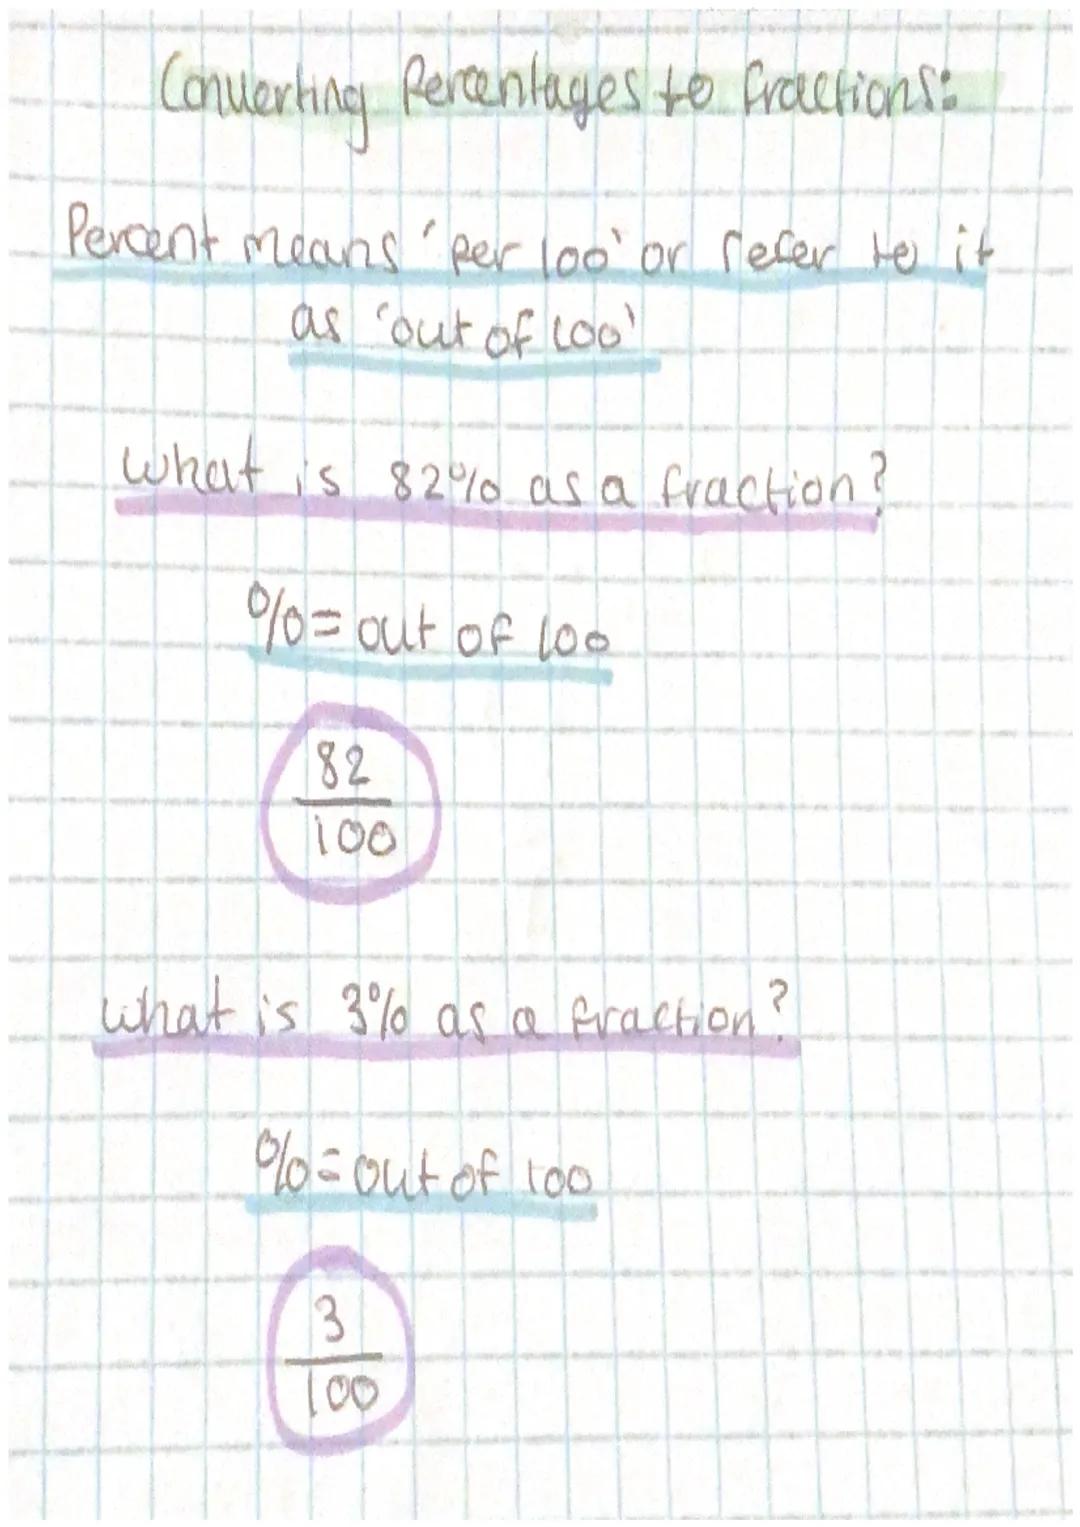 Converting Percentages to fractions:
Percent means 'per 100' or refer to it
as 'out of 100'
what is 82% as a fraction?
%= out of 100
82
100
what is 3% as a fraction?
%= out of 100
3
100